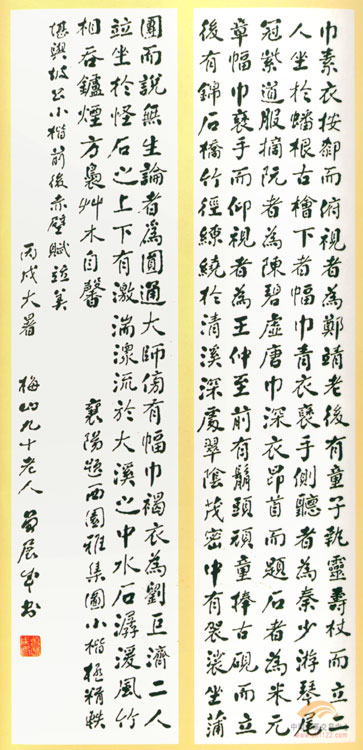 巾素衣按厀而俯視者為鄭靖老後有童子執靈壽杖而立二
人坐於蟠根古檜下者幅巾青衣褎手側聽者為秦少游琴尾
冠紫道服摘阮者為陳碧虛唐巾深衣昂首而題石者為米元
章幅巾褎手而仰視者為王仲至前有鬅頭頑童捧古硯而立
後有錦石橋竹徑繚繞於清溪深處翠陰茂密中有袈裟坐蒲
團而說無生論者為圓通大師傍有幅巾褐衣為劉巨濟二人
竝坐於怪石之上下有激湍潨流於大溪之中水石潺湲風竹
相吞鑪煙方裊艸木自馨 襄陽題西園雅集圖小楷極精軼
堪與坡公小楷前後赤壁賦竝美
丙戌大暑 梅山九十老人